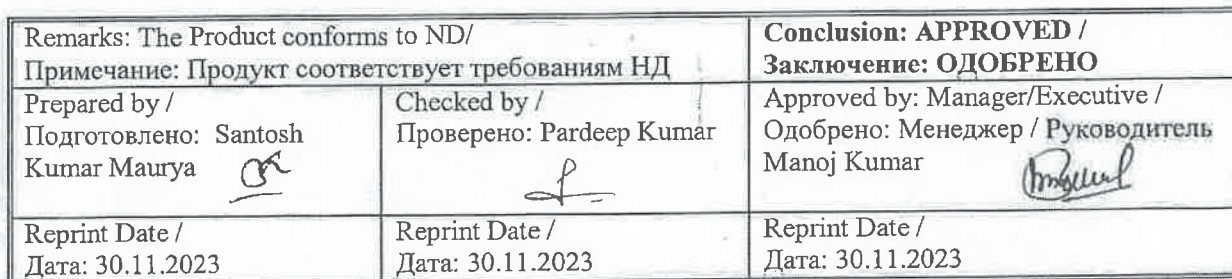 Remarks: The Product conforms to ND/
Примечание: Продукт соответствует требованиям НД
Conclusion: APPROVED /
Заключение: ОДОБРЕНО
Prepared by /
Подготовлено: Santosh
Kumar Maurya
Checked by /
Проверено: Pardeep Kumar
Approved by: Manager/Executive /
Одобрено: Менеджер / Руководитель
Manoj Kumar
Reprint Date /
Дата: 30.11.2023
Reprint Date /
Дата: 30.11.2023
Reprint Date /
Дата: 30.11.2023